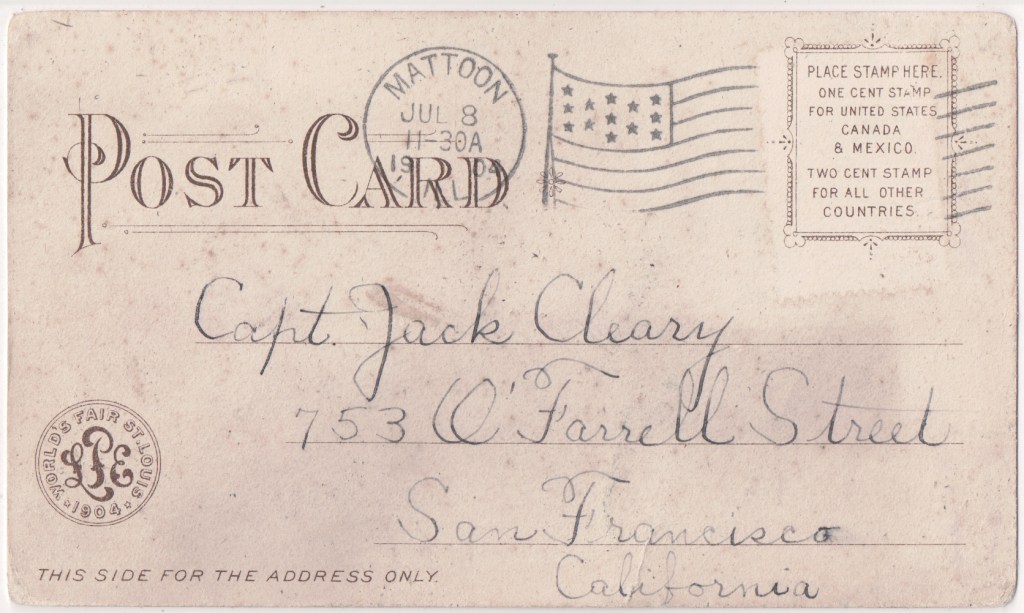 POST CARD
MATTOON
JUL 8
11-30A
19 04
ILL.
PLACE STAMP HERE.
ONE CENT STAMP
FOR UNITED STATES
CANADA
& MEXICO.
TWO CENT STAMP
FOR ALL OTHER
COUNTRIES.
Capt. Jack Cleary
753 O'Farrell Street
San Francisco
California
WORLD'S FAIR ST. LOUIS
LPE
1904
THIS SIDE FOR THE ADDRESS ONLY.